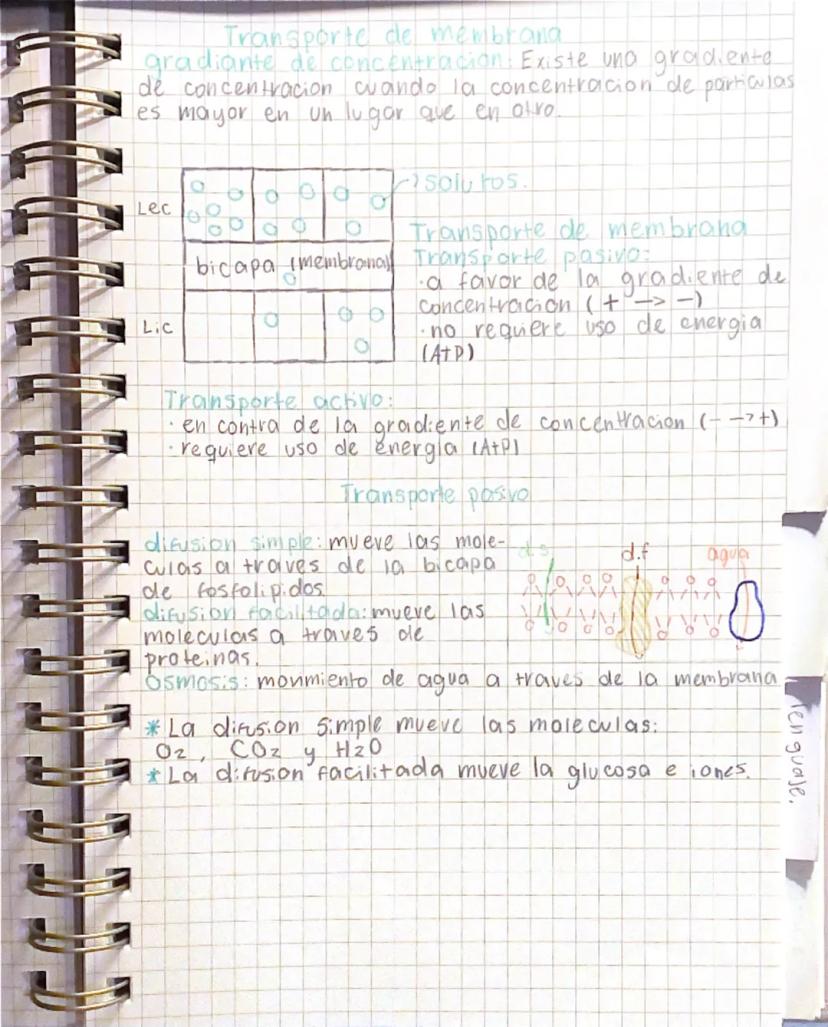 Transporte de membrana
gradiante de concentracion: Existe una gradiente
de concentracion cuando la concentracion de particulas
es mayor en un lugar que en otro.
solutos.
Lec
bicapa (membrana)
Lic
Transporte de membrana
Transporte pasivo:
·a favor de la gradiente de
concentracion (+ -> -)
·no requiere uso de energia
(AtP)
Transporte activo:
·en contra de la gradiente de concentracion (- -> +)
·requiere uso de energia (AtP)
Transporte pasivo
difusion simple: mueve las mole-
culas a traves de la bicapa
de fosfolipidos.
difusion facilitada: mueve las
moleculas a traves de
proteinas.
d.s
d.f
agua
Osmosis: movimiento de agua a traves de la membrana
* La difusion simple mueve las moleculas:
O2, CO2 y H2O
* La difusion facilitada mueve la glucosa e iones.
lenguaje.